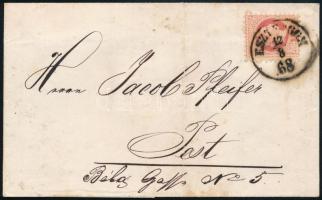 12
8
68
Herrn Jacob Pfeifer
Pest
Béla Gasse No 5.